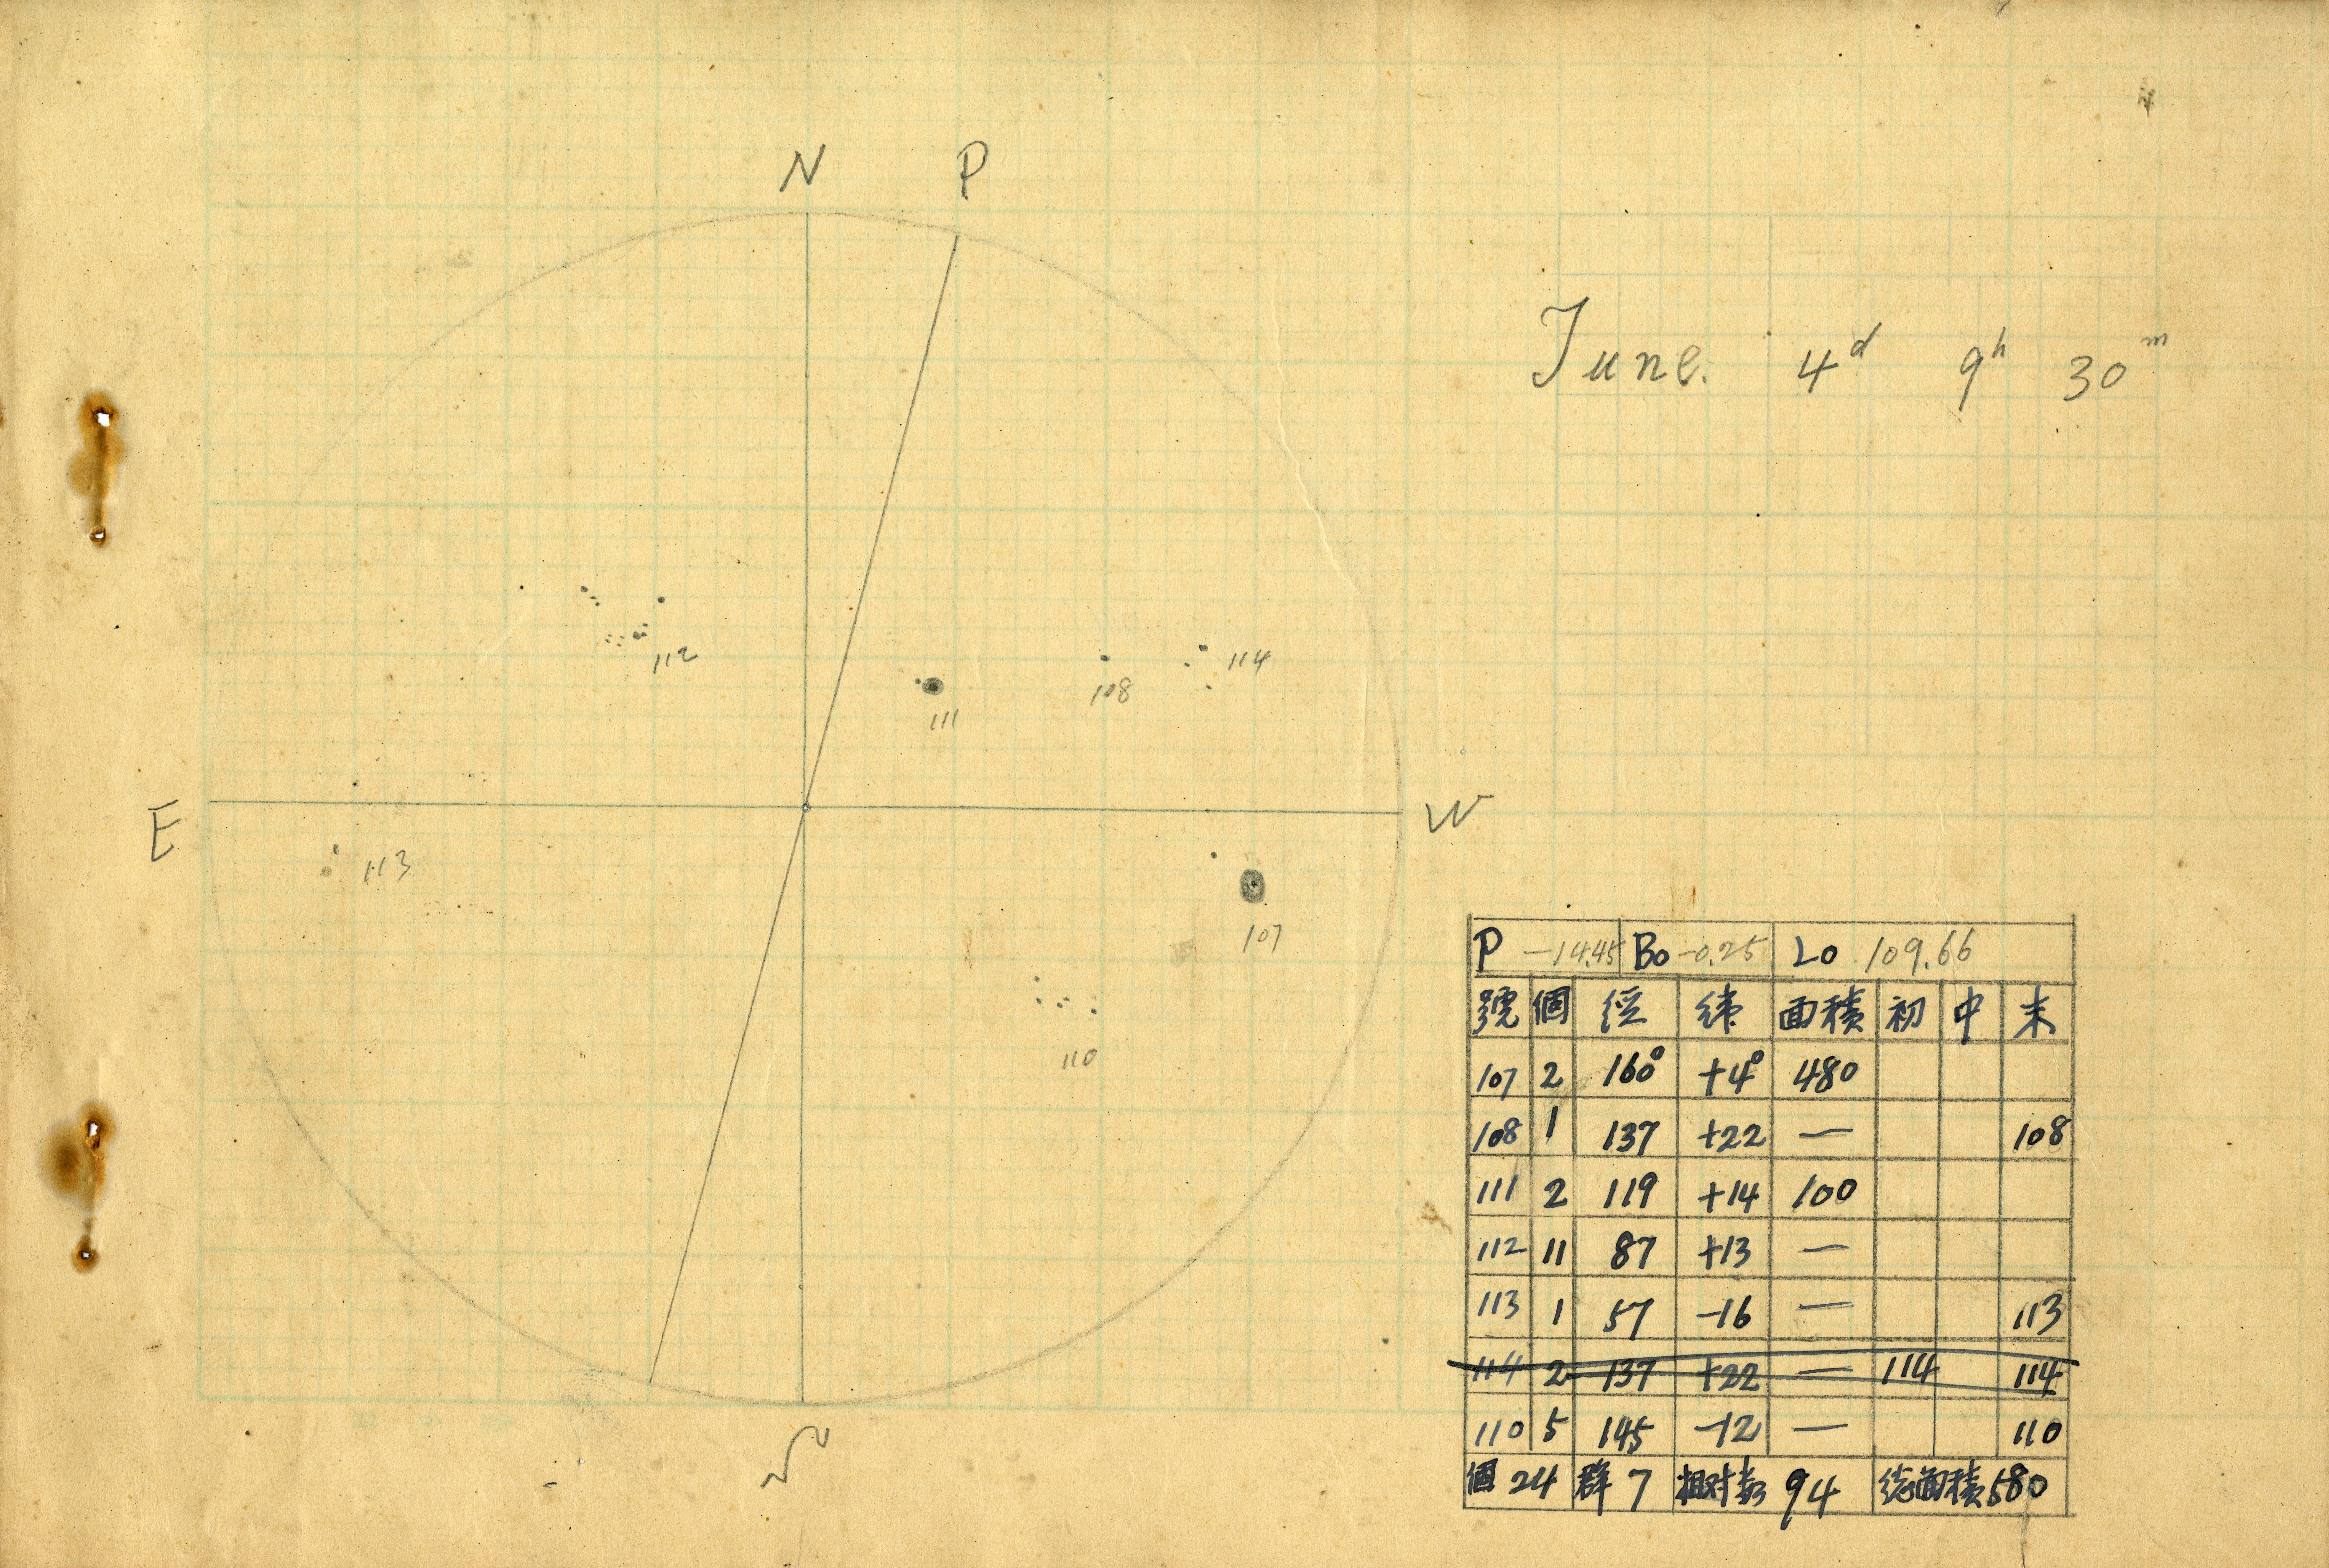 N P
June. 4d 9h 30m
112
111
108
114
E
W
113
107
110
S
P -14.45 Bo -0.25 Lo 109.66
號 個 径 緯 面積 初 中 末
107 2 160° +4° 480
108 1 137 +22 — 108
111 2 119 +14 100
112 11 87 +13 —
113 1 57 -16 — 113
114 2 137 +22 — 114 114
110 5 145 -12 — 110
個 24 群 7 相対数 94 総面積 580